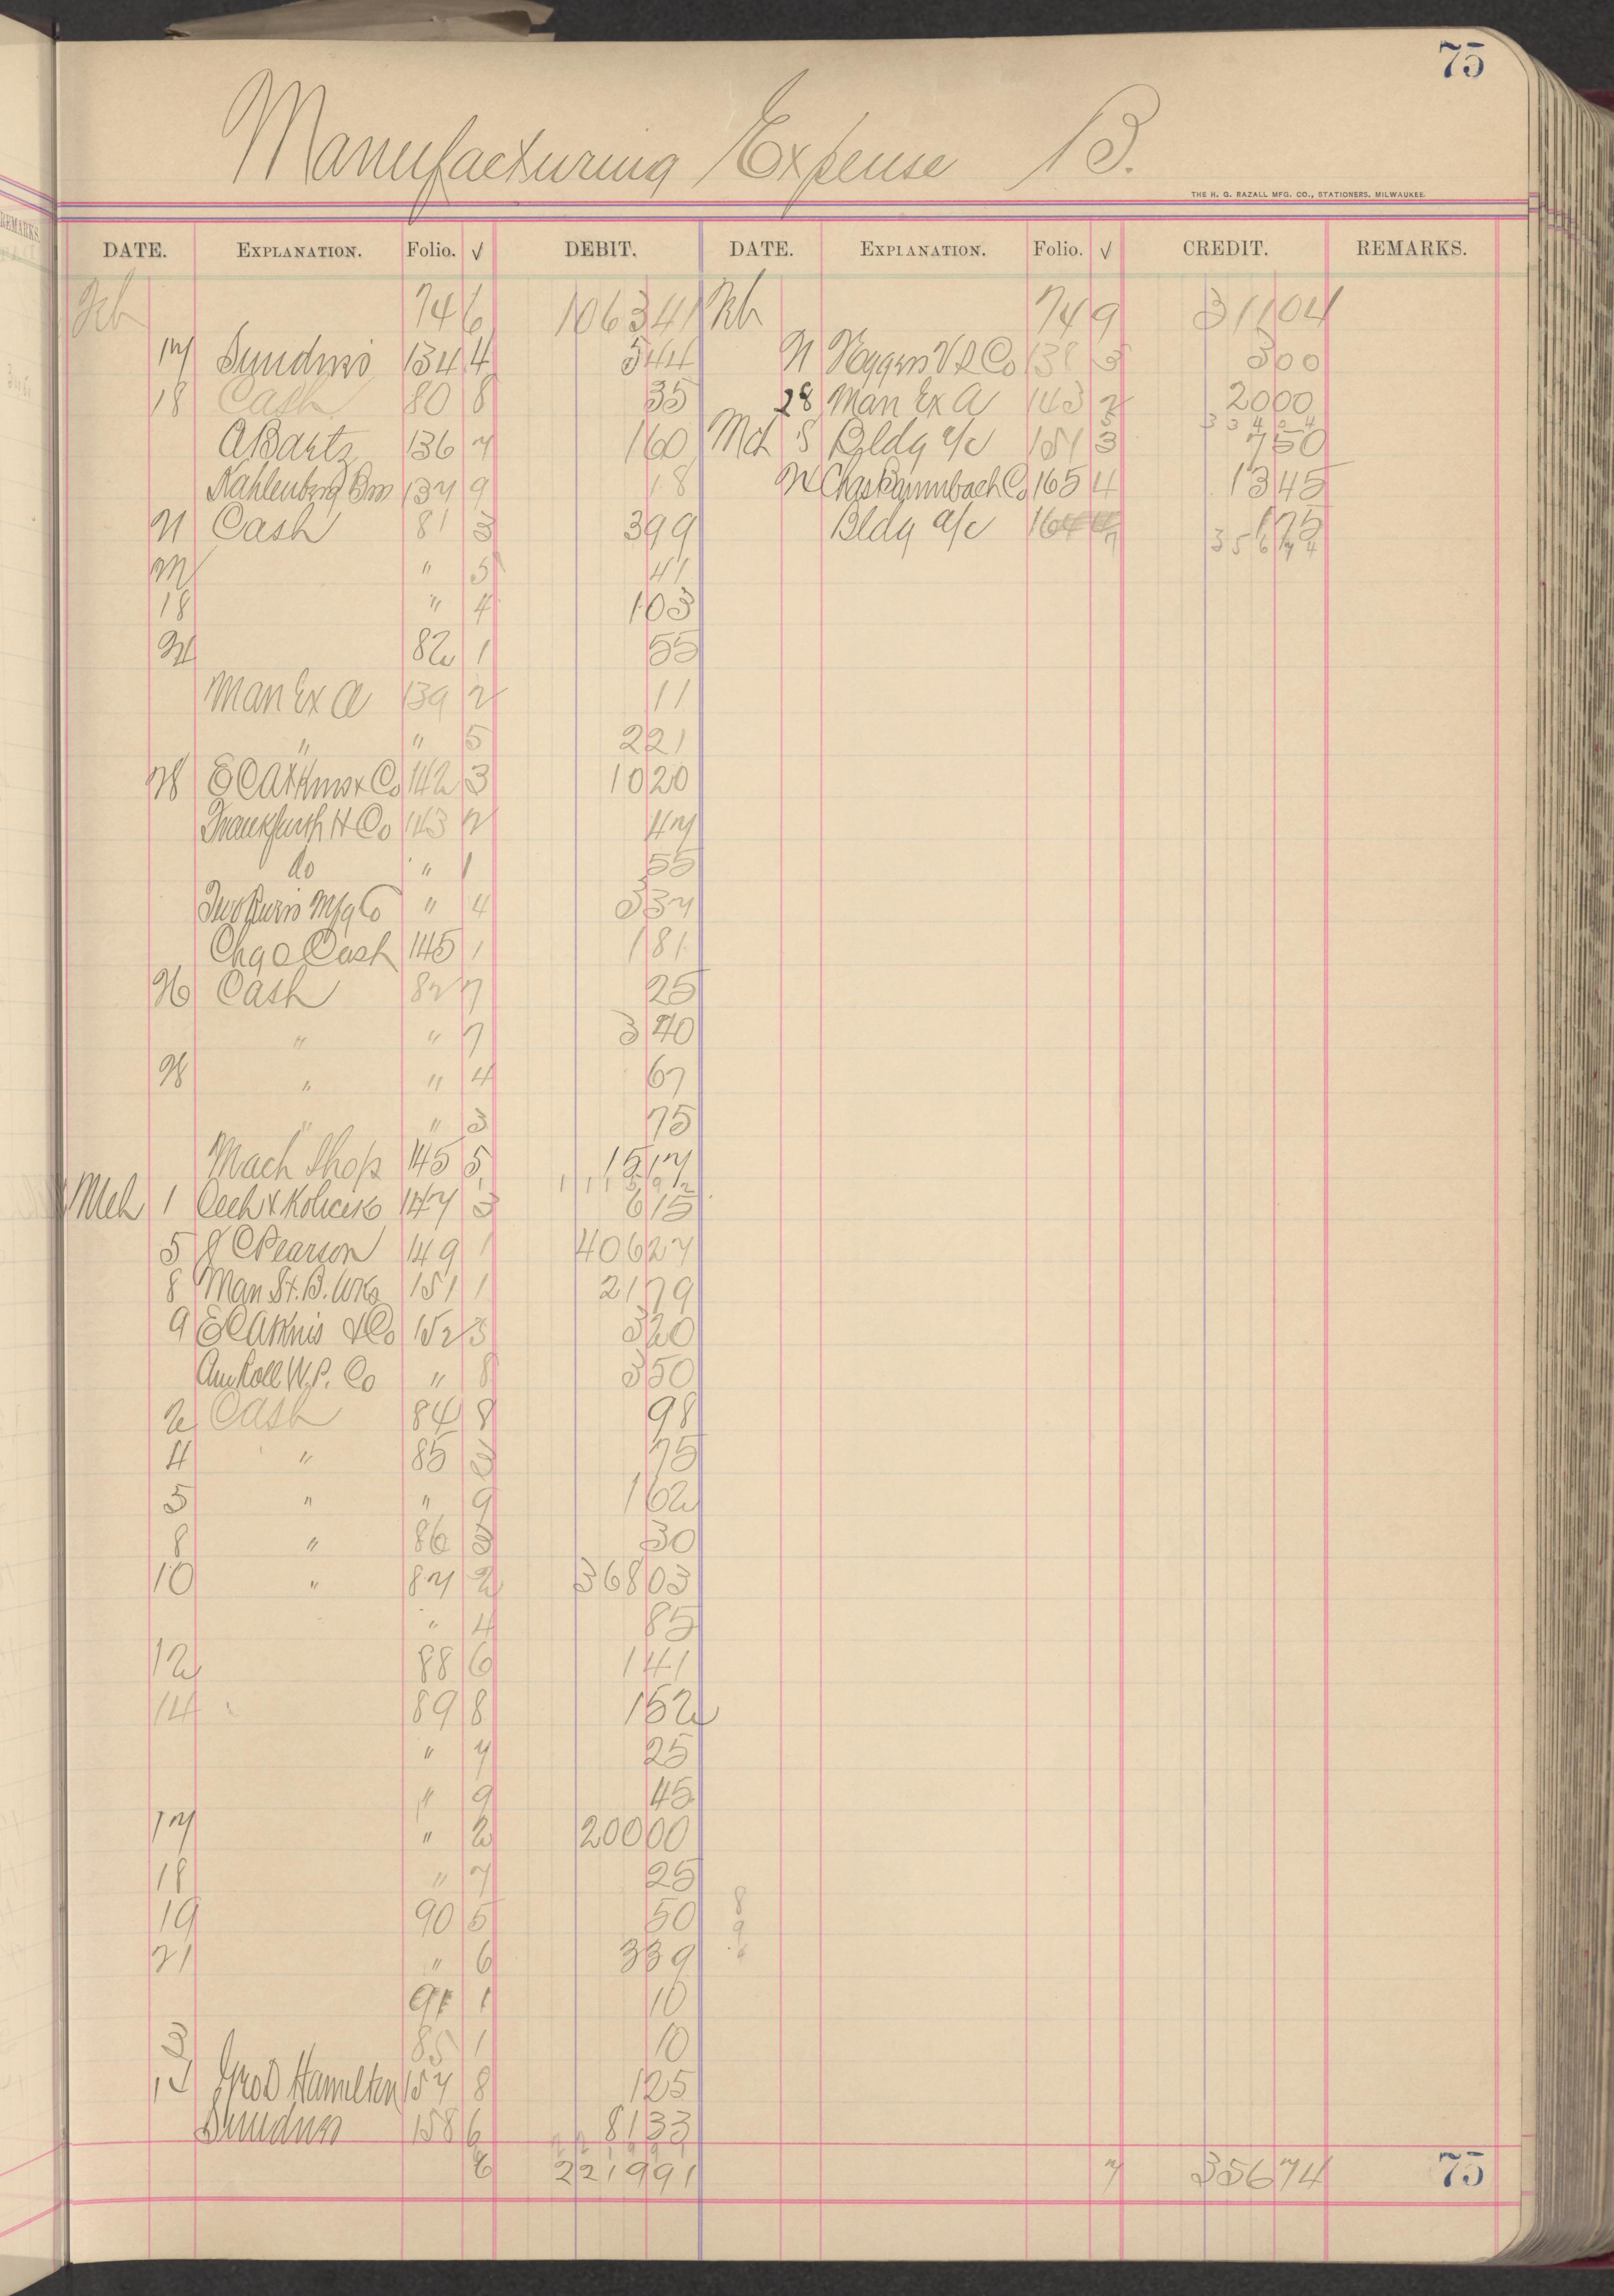 75
Manufacturing Expense B.
THE H. G. RAZALL MFG. CO., STATIONERS, MILWAUKEE.
DATE. EXPLANATION. Folio. √ DEBIT. DATE. EXPLANATION. Folio. √ CREDIT. REMARKS.
Feb 74 6 1063 41 Feb 74 9 311 04
17 Sundries 134 4 5 44 21 V R Co 138 3 3 00
18 Cash 80 8 35 28 Man Ex A 143 2 20 00
334 04
A Bartz 136 7 1 60 Mch 8 Bldg a/c 151 3 7 50
Kahlenberg Bros 137 9 18 Chas Co 165 4 13 45
21 Cash 81 3 3 99 Bldg a/c 164 1 75
356 74
" 5 41
18 " 4 1 03
82 1 55
Man Ex A 139 2 11
" " 5 2 21
28 E C Atkins & Co 142 3 10 20
Frankfurth H Co 143 2 47
do " 1 55
Two Rivers Mfg Co " 4 3 37
Chgo Cash 145 1 1 81
26 Cash 82 7 25
" " 7 3 40
28 " " 4 67
" " 3 75
Mach Shop 145 5 15 17
1115 92
Mch 1 Cech & Kolicisko 147 3 6 15
5 J C Pearson 149 1 406 27
8 Man St. B. Wks 151 1 21 79
9 E C Atkins & Co 152 3 3 20
Am Roll W. P. Co " 8 3 50
2 Cash 84 8 98
4 " 85 3 75
5 " " 9 1 62
8 " 86 3 30
10 " 87 2 368 03
" 4 85
12 88 6 1 41
14 89 8 1 52
" 7 25
" 9 45
17 " 2 200 00
18 " 7 25 8
19 90 5 50 9
21 " 6 3 39 6
91 1 10
3 85 1 10
Hamilton 157 8 1 25
Sundries 158 6 81 33
6 2219 91 7 356 74 75